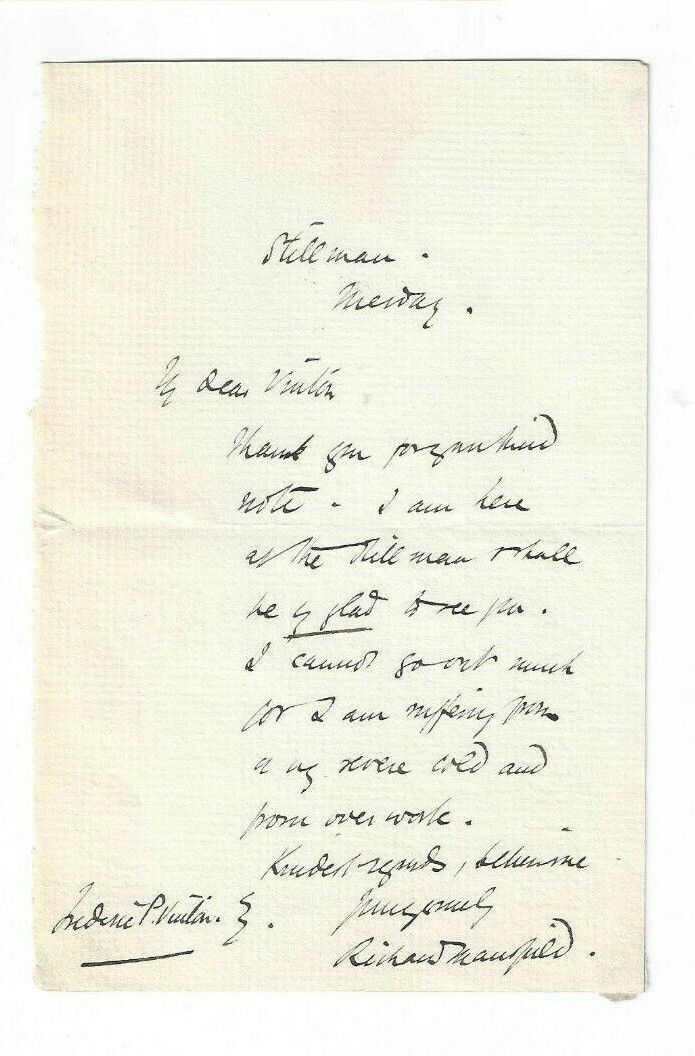 Stillman.
Tuesday.
My dear Vinton
Thank you for your kind
note - I am here
at the Stillman & shall
be vy glad to see you.
I cannot go out much
for I am suffering from
a vy severe cold and
from overwork.
Kindest regards, believe me
Yours sincerely
Frederic P. Vinton. Esq.
Richard Mansfield.